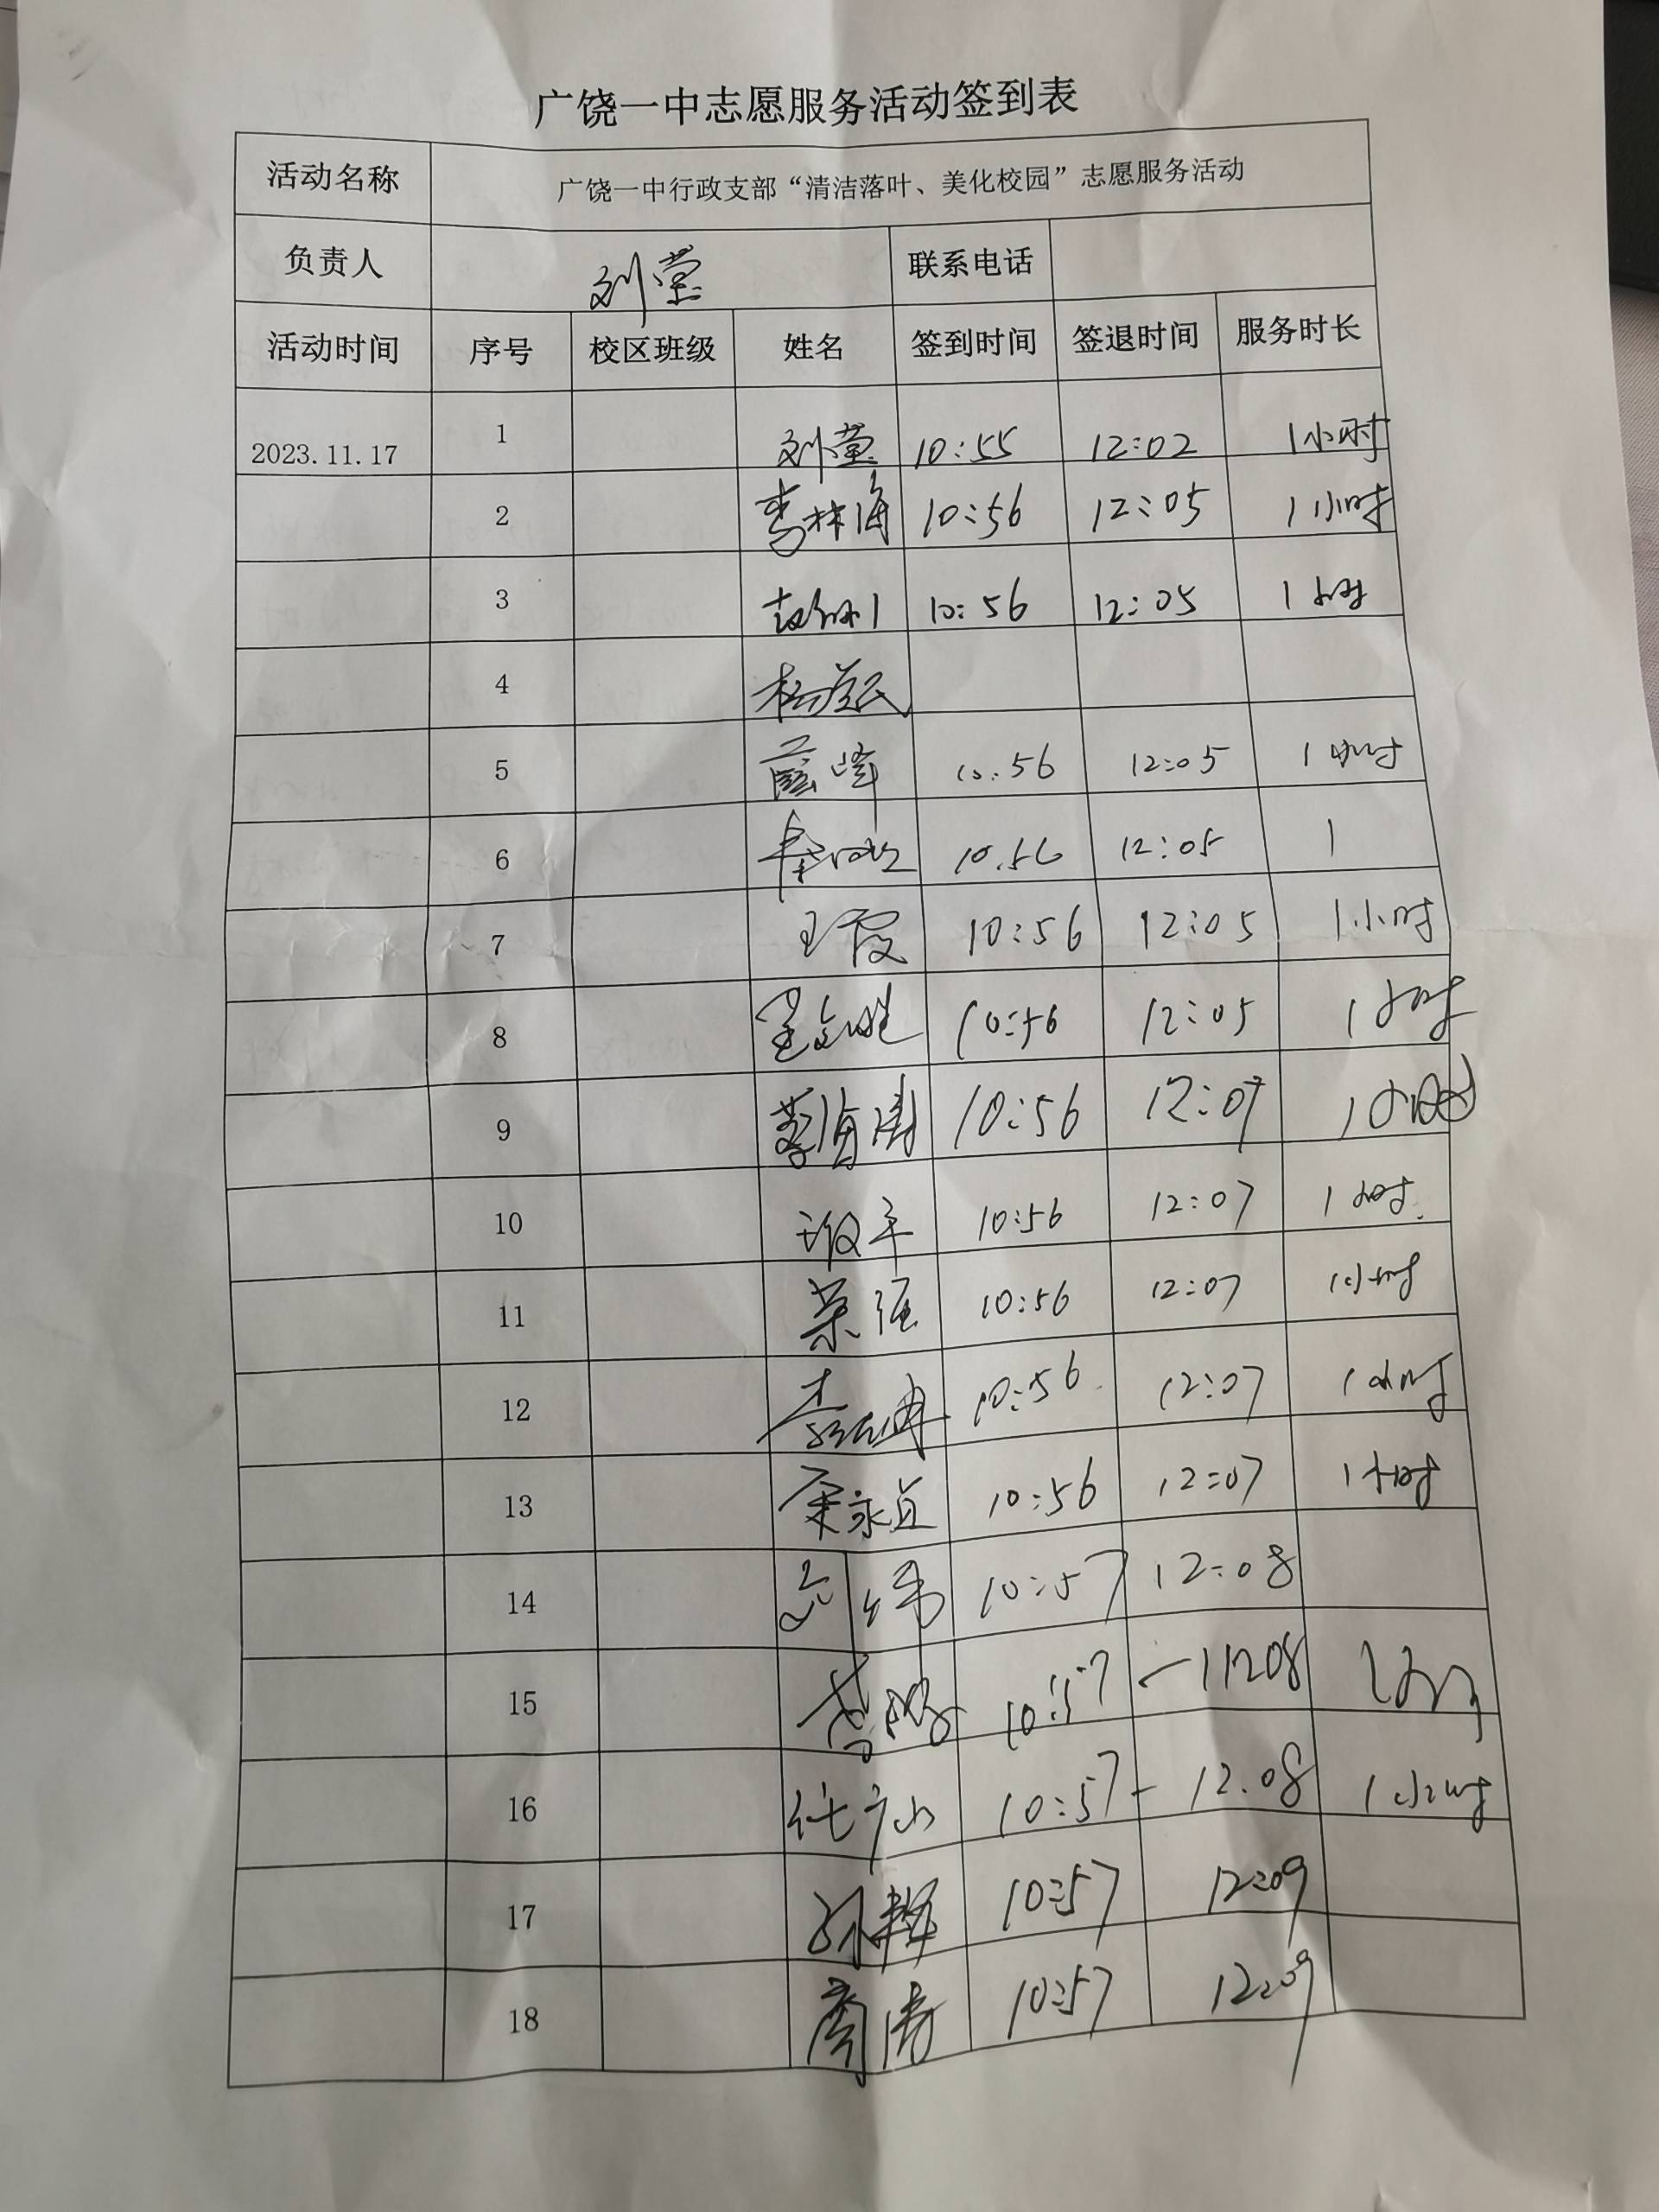 广饶一中志愿服务活动签到表
活动名称 广饶一中行政支部“清洁落叶、美化校园”志愿服务活动
负责人 刘莹 联系电话
活动时间 序号 校区班级 姓名 签到时间 签退时间 服务时长
2023.11.17 1 刘莹 10:55 12:02 1小时
2 李林海 10:56 12:05 1小时
3 10:56 12:05 1小时
4
5 10:56 12:05 1小时
6 10:56 12:05 1
7 王霞 10:56 12:05 1小时
8 10:56 12:05 1小时
9 蔡海涛 10:56 12:07 1小时
10 10:56 12:07 1小时
11 荣强 10:56 12:07 1小时
12 10:56 12:07 1小时
13 10:56 12:07 1小时
14 10:57 12:08
15 10:57 1208
16 10:57- 12.08 1小时
17 孙辉 10:57 12:09
18 商涛 10:57 12:09